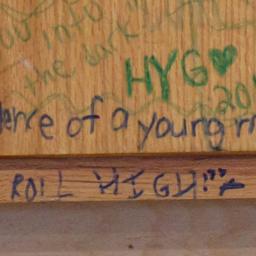 into
the dark
HYG♥
20
ence of a young m
ROLL HIGH!!!